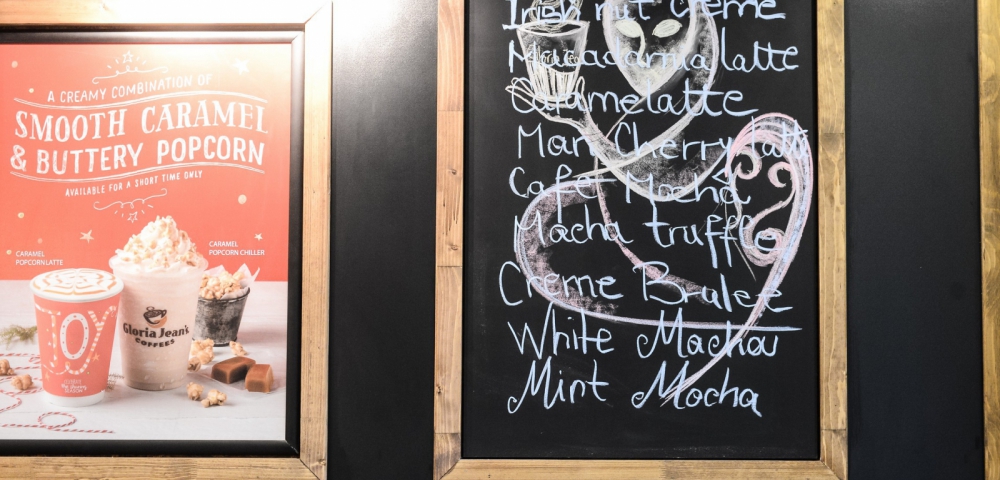 A CREAMY COMBINATION OF
SMOOTH CARAMEL
& BUTTERY POPCORN
AVAILABLE FOR A SHORT TIME ONLY
CARAMEL
POPCORN CHILLER
CARAMEL
POPCORNLATTE
JOY
Gloria Jean's
COFFEES
Irish nut Creme
Macadamia latte
Caramelatte
Mon Cherry latte
Cafe Mocha
Macha truffle
Creme Brulee
White Macha
Mint Mocha